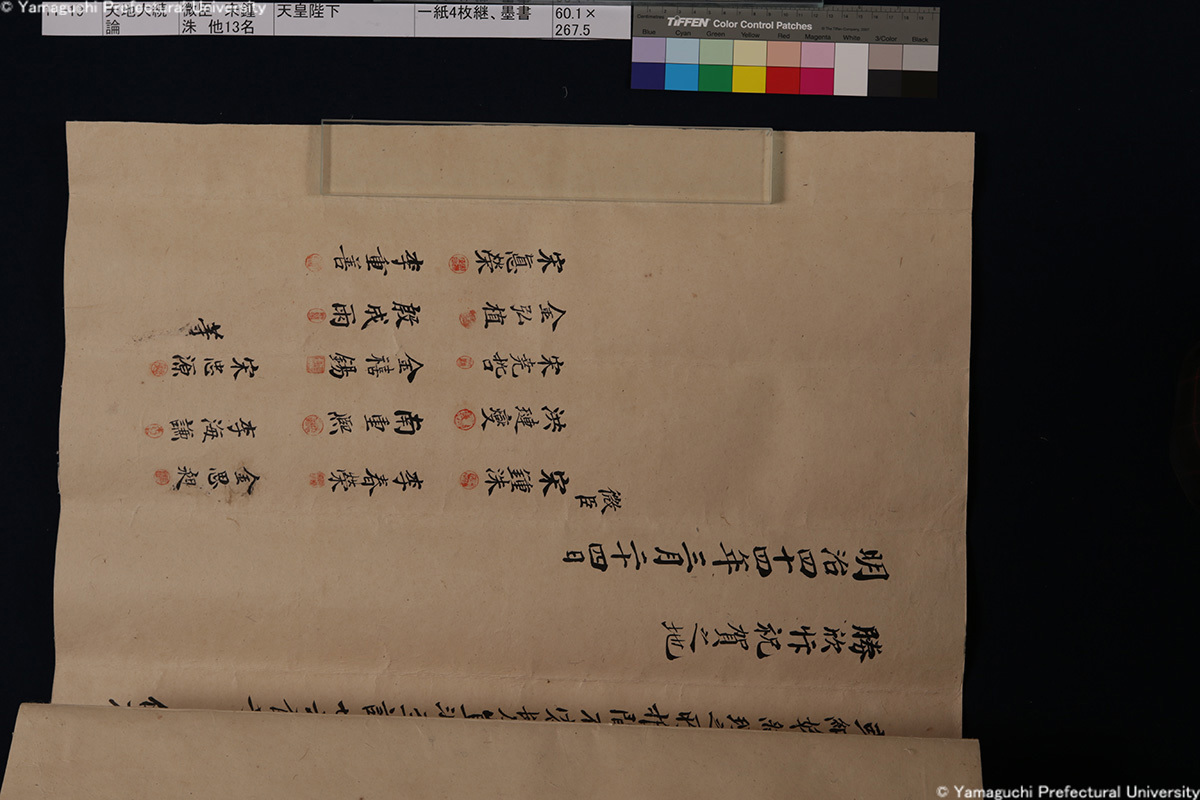 © Yamaguchi Prefectural University
天地人統論
微臣 宋鍾洙 他13名
天皇陛下
一紙4枚継、墨書
60.1×267.5
TIFFEN Color Control Patches
Blue Cyan Green Yellow Red Magenta White 3/Color Black
勝欣忭祝賀之地
明治四十四年三月二十四日
微臣
宋鍾洙
洪璉燮
宋堯哲
金弘植
宋眞榮
李春榮
南重熙
金禧錫
殷成雨
李重善
金思
李海謙
宋忠源
等
© Yamaguchi Prefectural University